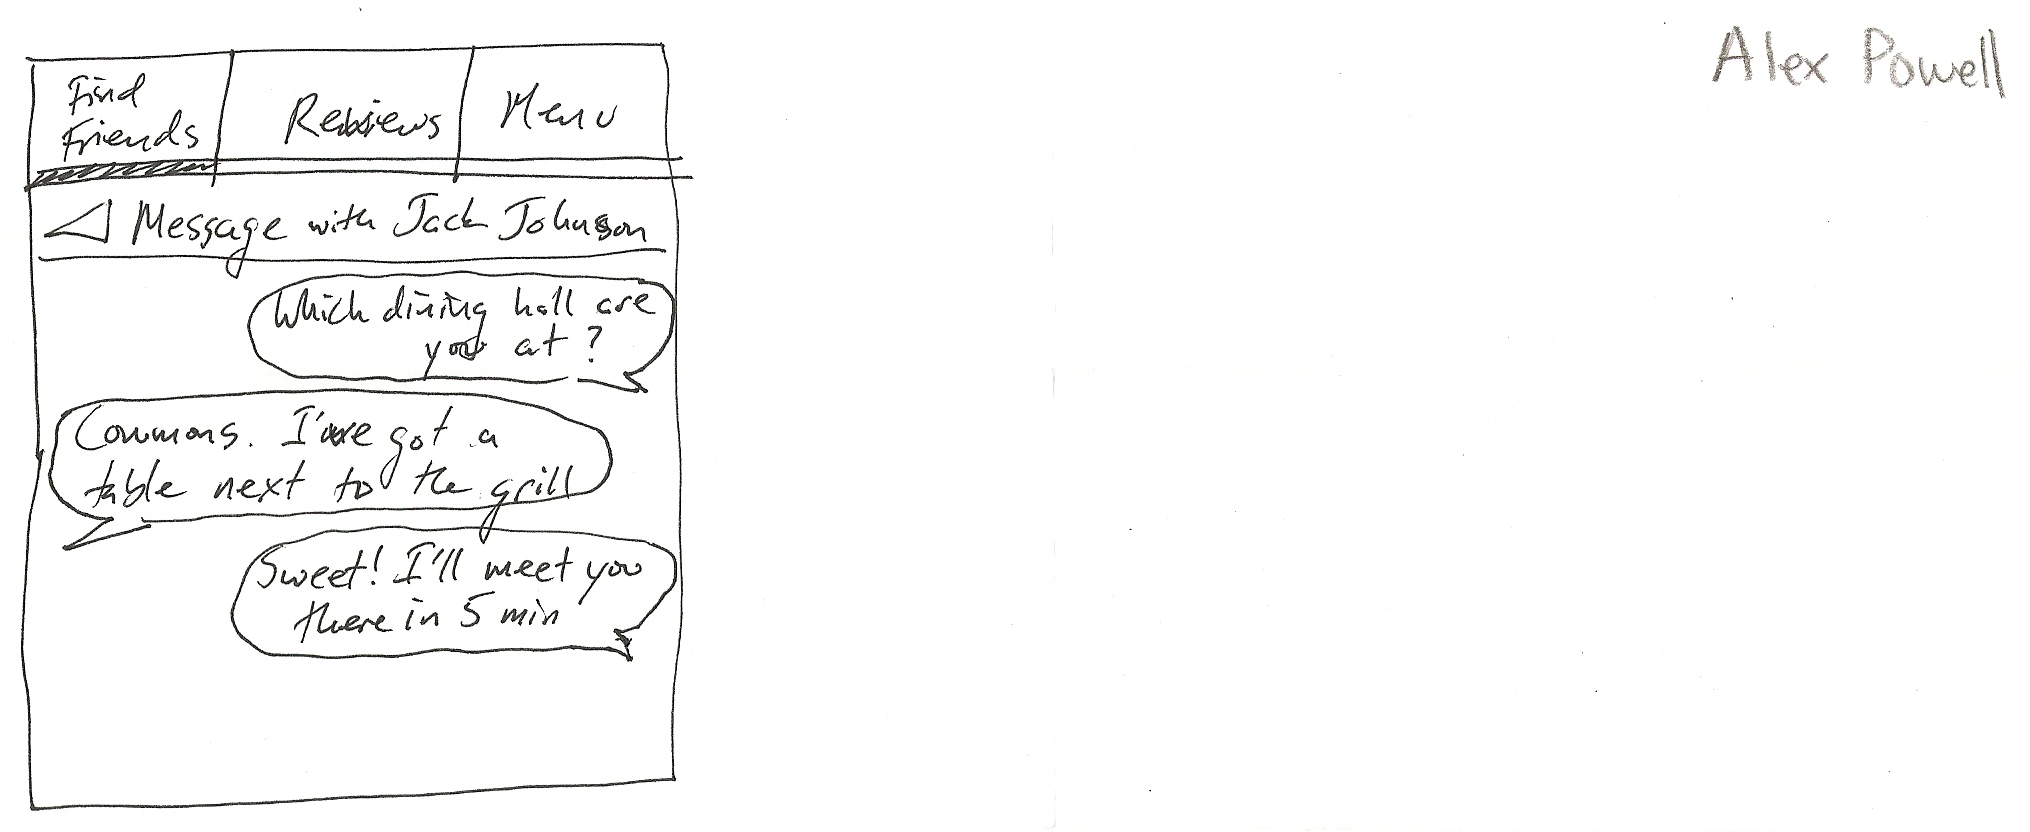 Alex Powell
Find
Friends
Reviews
Menu
Message with Jack Johnson
Which dining hall are
you at?
Commons. I've got a
table next to the grill
Sweet! I'll meet you
there in 5 min